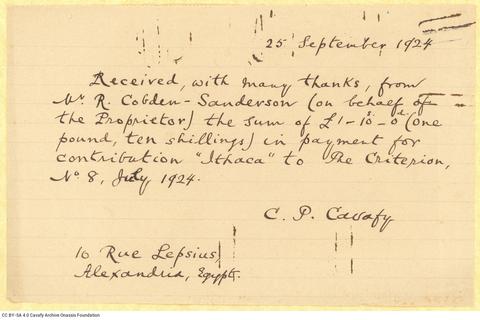 25 September 1924
Received, with many thanks, from
Mr. R. Cobden-Sanderson (on behalf of
the Proprietor) the sum of £1-10s-0d (one
pound, ten shillings) in payment for
contribution "Ithaca" to The Criterion,
No 8, July 1924.
C. P. Cavafy
10 Rue Lepsius,
Alexandria, Egypt.
CC BY-SA 4.0 Cavafy Archive Onassis Foundation